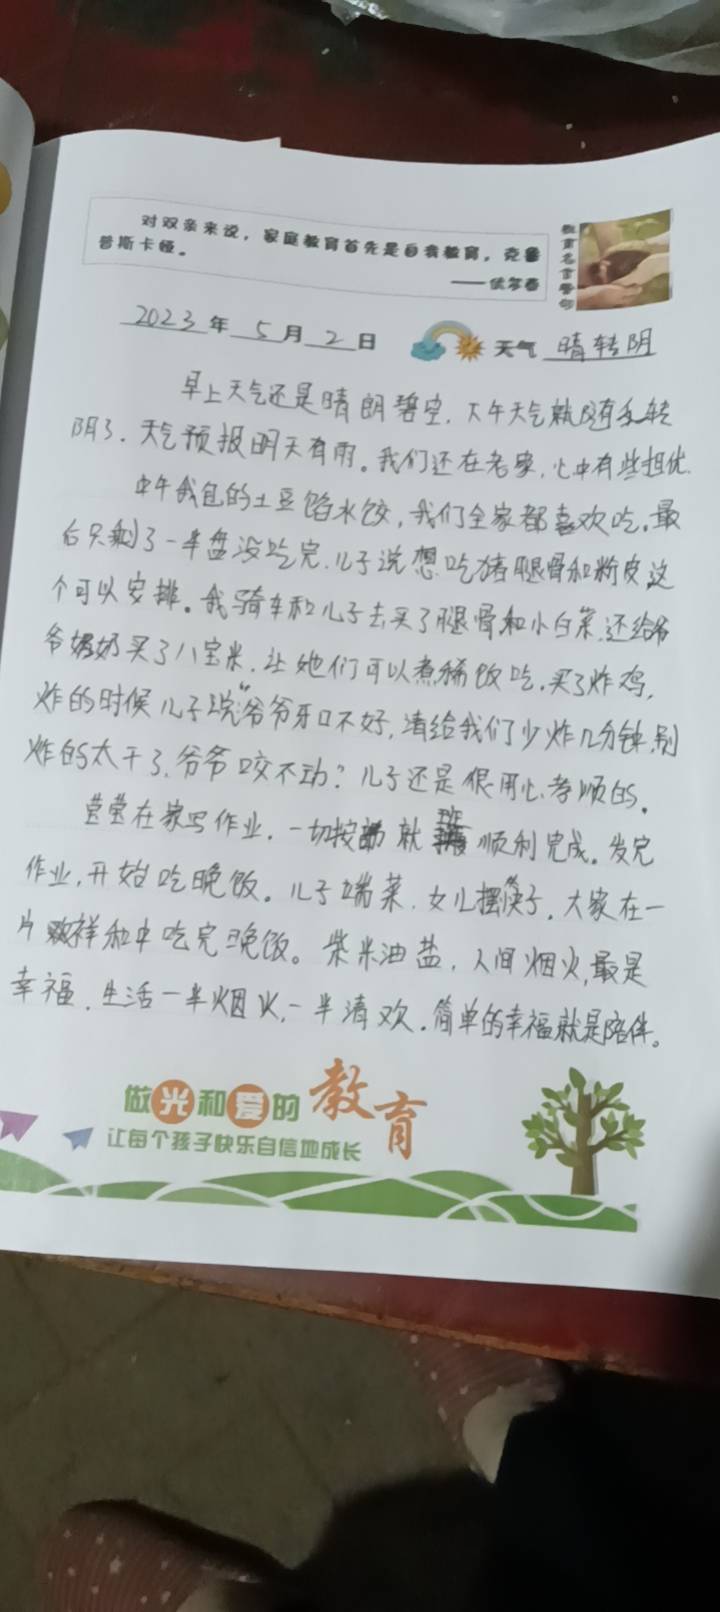 对双亲来说，家庭教育首先是自我教育，克鲁
普斯卡娅。
教育名言警句
2023年5月2日
天气 晴转阴
早上天气还是晴朗碧空，下午天气就随多转
阴了，天气预报明天有雨。我们还在老家，心中有些担忧.
中午我包的土豆馅水饺，我们全家都喜欢吃。最
后只剩了一半盘没吃完.儿子说想吃猪腿骨和粉皮,这
个可以安排。我骑车和儿子去买了腿骨和小白菜.还给爷
爷奶奶买了八宝米，让她们可以煮稀饭吃，买了炸鸡，
炸的时候儿子说“爷爷牙口不好，请给我们少炸几分钟,别
炸的太干了，爷爷咬不动? 儿子还是很用心、孝顺的。
莹莹在家写作业，一切按 就 班 顺利完成。发完
作业，开始吃晚饭。儿子端菜，女儿摆筷子，大家在一
片 祥和中吃完晚饭。柴米油盐，人间烟火,最是
幸福，生活一半烟火，一半清欢，简单的幸福就是陪伴。
做光和爱的教育
让每个孩子快乐自信地成长